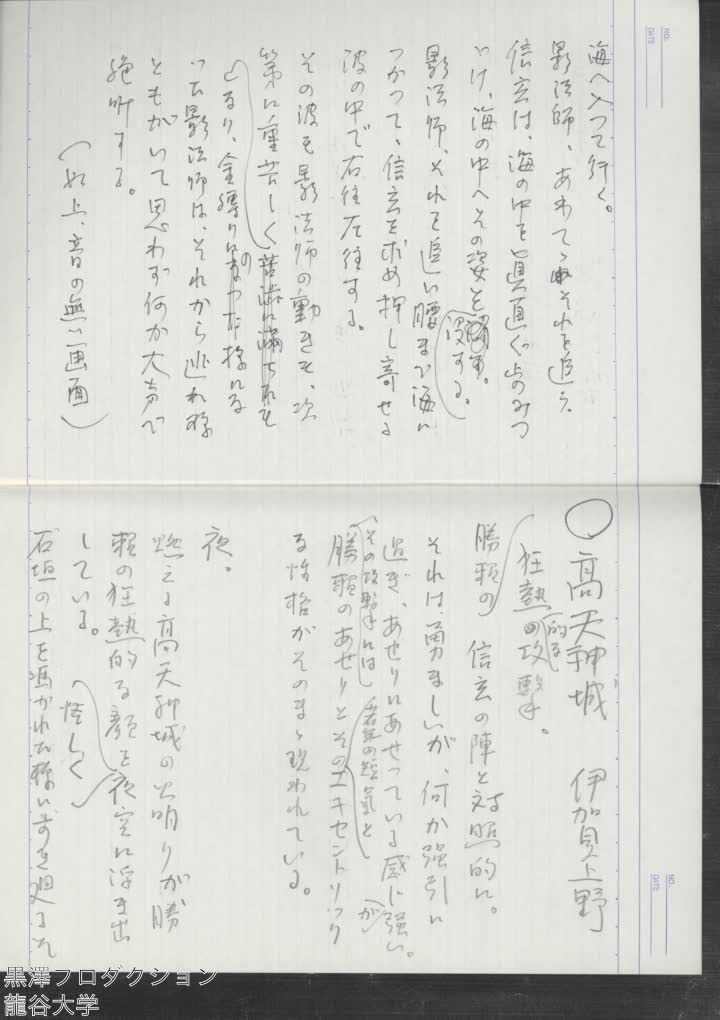 海へ入って行く。
影法師、あわてゝそれを追う。
信玄は、海の中を真直ぐ歩みつ
ゞけ、海の中へその姿を没する。
影法師、それを追い腰まで海に
つかって、信玄を求め押し寄せる
波の中で右往左往する。
その波も影法師の動きも、次
第に重苦しく苦渋に満ちたも
のになり、金縛りになった様になる
影法師は、それから逃れ様
ともがいて思わず何か大声で
絶叫する。
(以上、音の無い画面)
○高天神城 伊賀上野
狂熱的な攻撃。
勝頼の 信玄の陣と対照的に。
それは、勇ましいが、何か強引に
過ぎ、あせりにあせっている感じが強い。
その攻撃には 若気の短気と
勝頼のあせりとそのエキセントリック
な性格がそのまゝ現われている。
夜。
燃える高天神城の火明りが勝
頼の狂熱的な顔を夜空に浮き出
している。
怪しく
石垣の上を憑かれた様に歩き廻る
NO.
DATE
NO.
DATE
黒澤プロダクション
龍谷大学